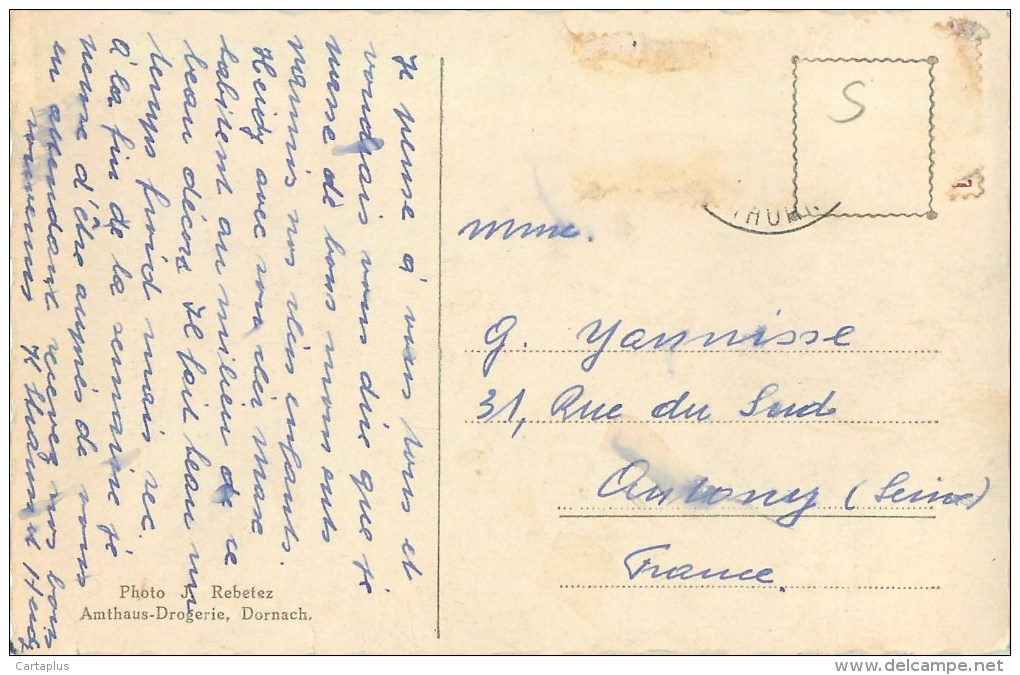 Je pense à vous tous et
voudrais vous dire que je
passe de bons moments
parmis nos chers enfants.
Heidy avec
habitent au milieu de ce
beau décors Il fait beau un
temps froid mais sec.
A la fin de la semaine je
pense d'être auprès de vous
en attendant recevez nos bons
souvenirs
Photo J. Rebetez
Amthaus-Drogerie, Dornach.
S
Mme.
G. Yannisse
31, Rue du Sud
Antony (Seine)
France
Cartaplus
www.delcampe.net